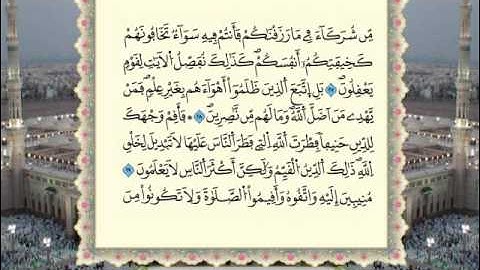 مِّن شُرَكَآءَ فِى مَا رَزَقْنَٰكُمْ فَأَنتُمْ فِيهِ سَوَآءٌ تَخَافُونَهُمْ
كَخِيفَتِكُمْ أَنفُسَكُمْ ۚ كَذَٰلِكَ نُفَصِّلُ ٱلْءَايَٰتِ لِقَوْمٍ
يَعْقِلُونَ ۝ بَلِ ٱتَّبَعَ ٱلَّذِينَ ظَلَمُوٓا۟ أَهْوَآءَهُم بِغَيْرِ عِلْمٍ ۖ فَمَن
يَهْدِى مَنْ أَضَلَّ ٱللَّهُ ۖ وَمَا لَهُم مِّن نَّٰصِرِينَ ۝ فَأَقِمْ وَجْهَكَ
لِلدِّينِ حَنِيفًا ۚ فِطْرَتَ ٱللَّهِ ٱلَّتِى فَطَرَ ٱلنَّاسَ عَلَيْهَا ۚ لَا تَبْدِيلَ لِخَلْقِ
ٱللَّهِ ۚ ذَٰلِكَ ٱلدِّينُ ٱلْقَيِّمُ وَلَٰكِنَّ أَكْثَرَ ٱلنَّاسِ لَا يَعْلَمُونَ ۝
مُنِيبِينَ إِلَيْهِ وَٱتَّقُوهُ وَأَقِيمُوا۟ ٱلصَّلَوٰةَ وَلَا تَكُونُوا۟ مِنَ